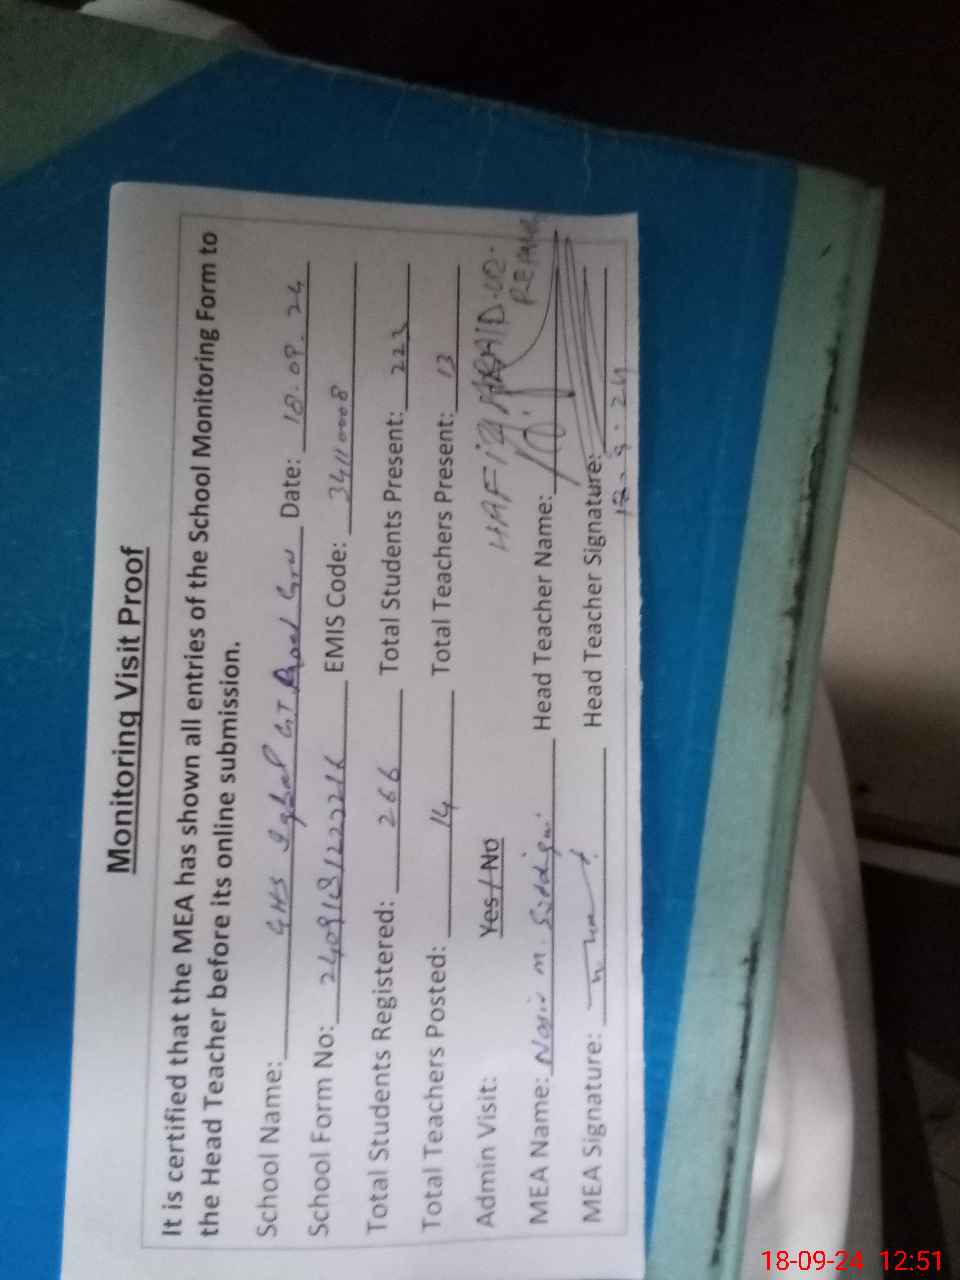 Monitoring Visit Proof
It is certified that the MEA has shown all entries of the School Monitoring Form to
the Head Teacher before its online submission.
School Name: GHS Iqbal GT Road Grw Date: 18.09.24
School Form No: EMIS Code: 34110008
Total Students Registered: 266 Total Students Present: 223
Total Teachers Posted: 14 Total Teachers Present: 13
Admin Visit: Yes / No HAFIZ
MEA Name: Nasir M. Siddiqui Head Teacher Name:
MEA Signature: Head Teacher Signature:
18.9.24
18-09-24 12:51